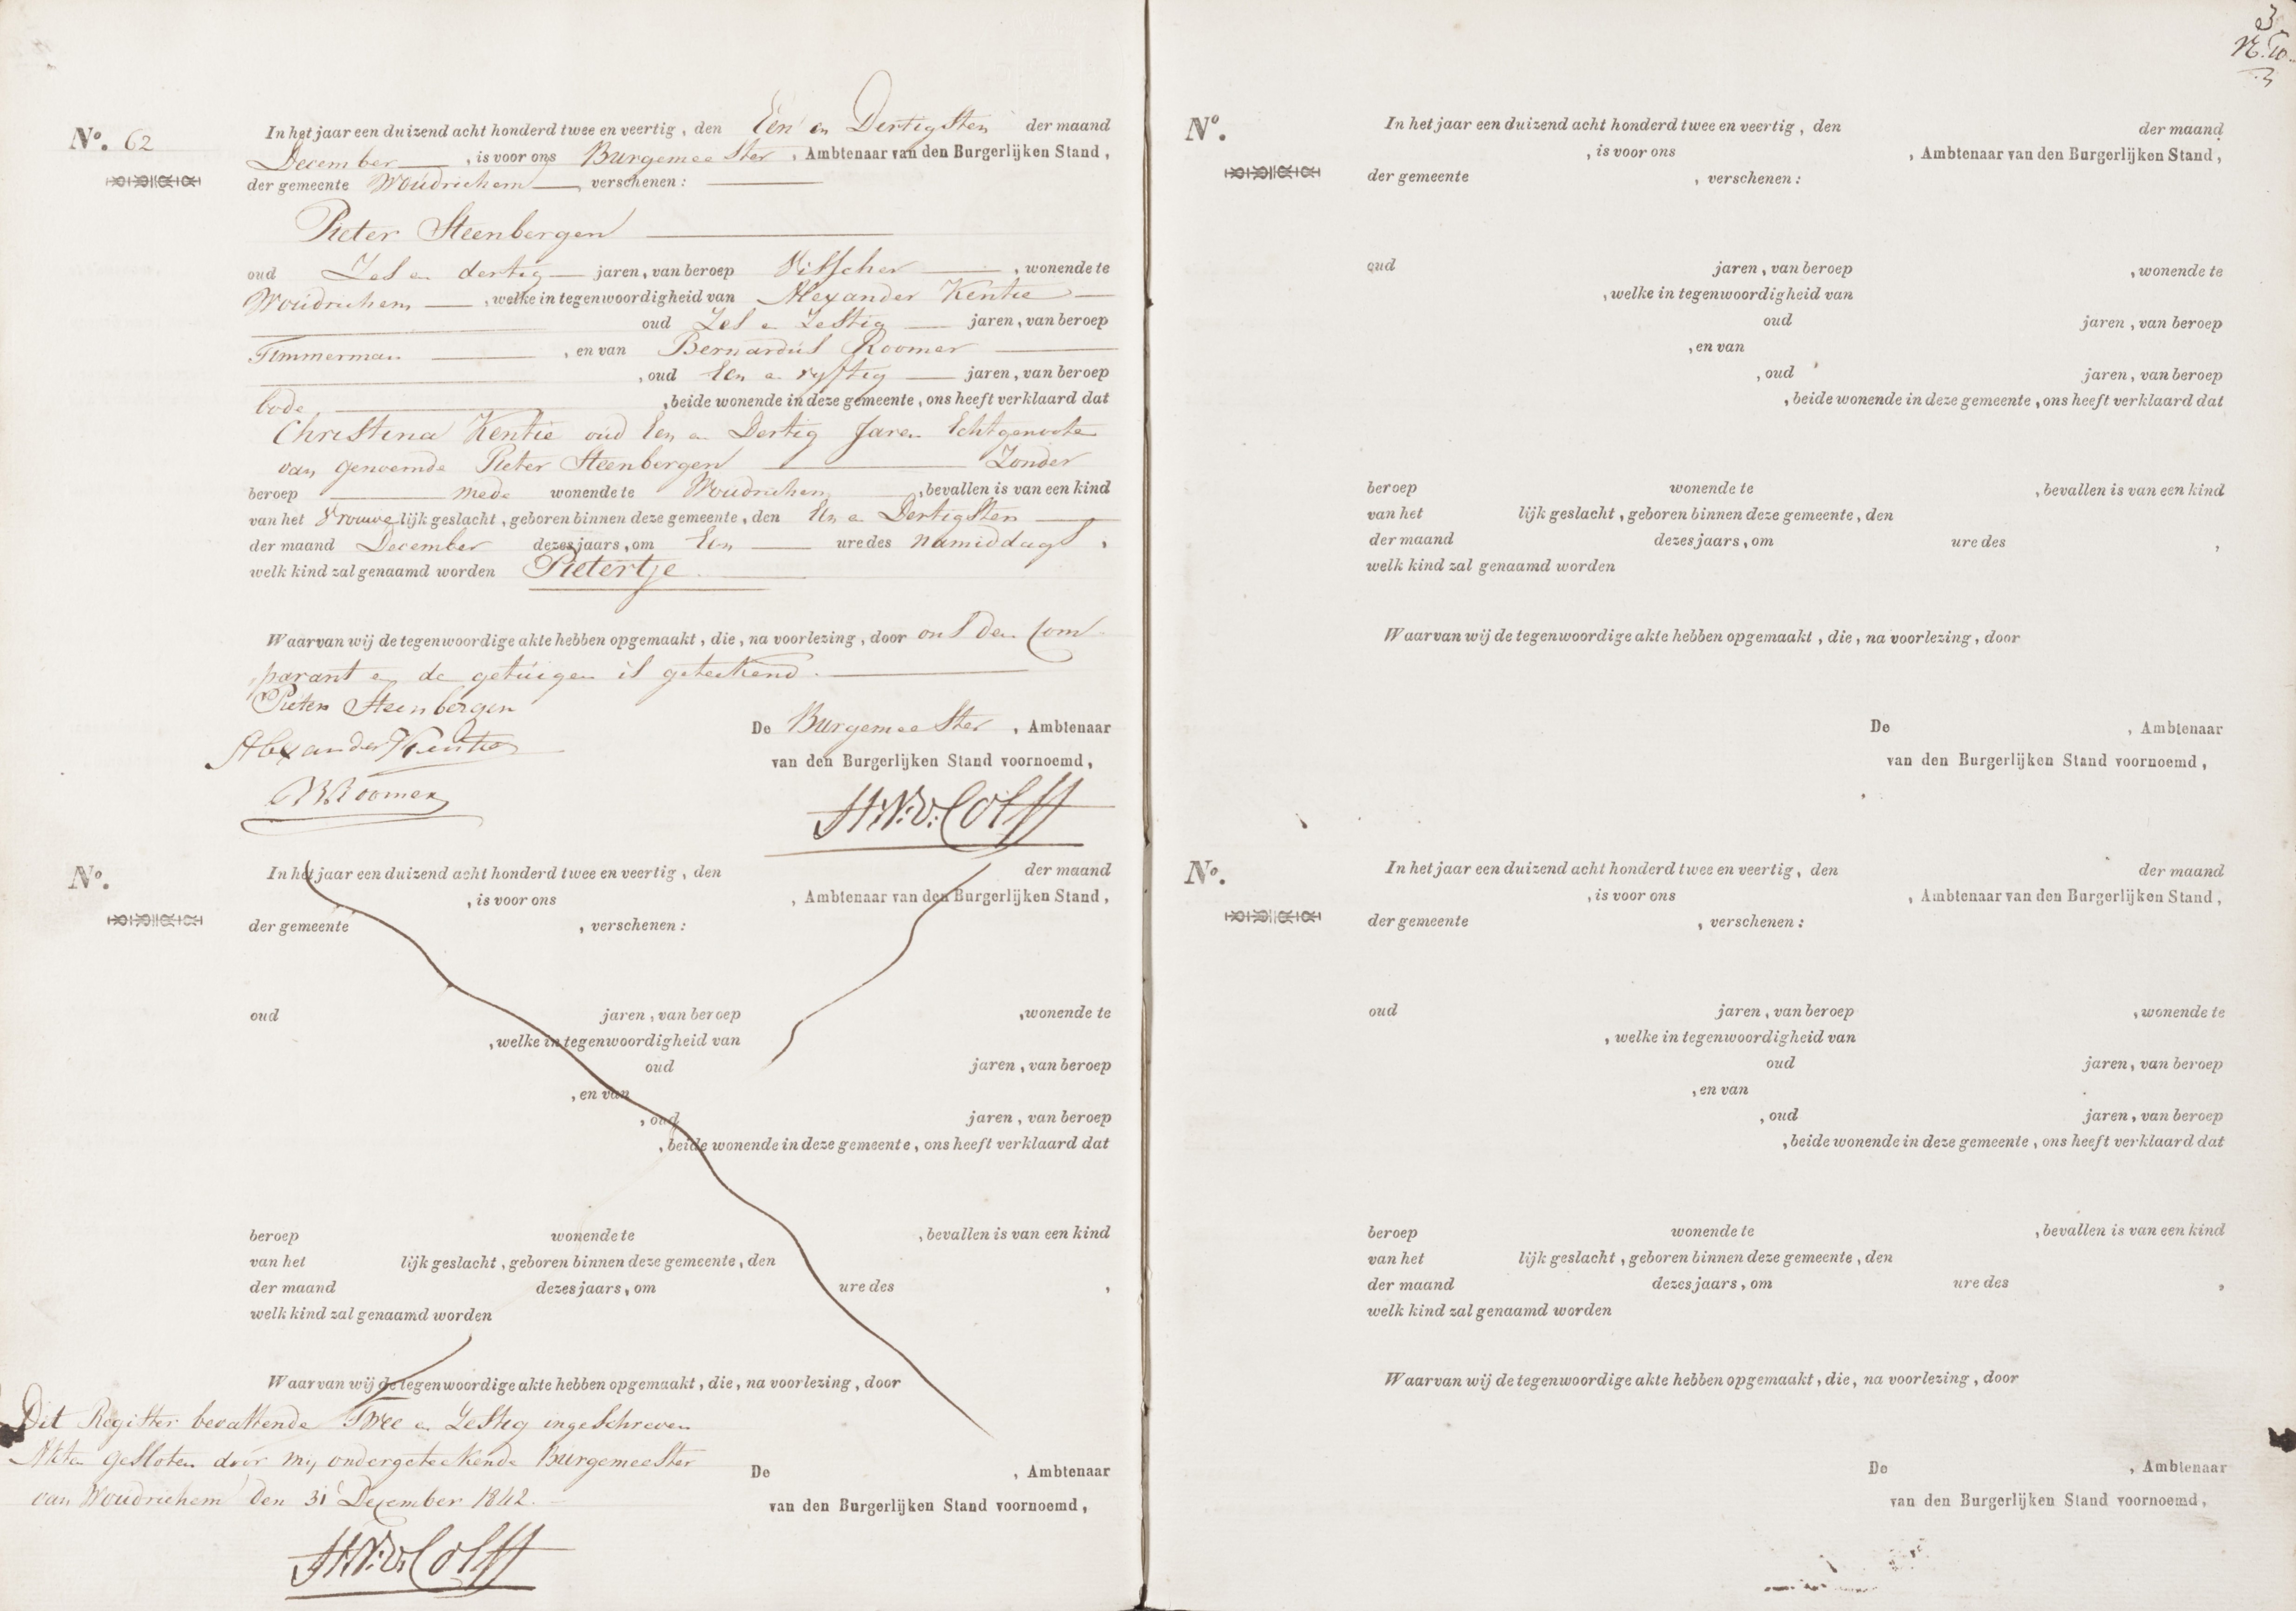 No. 62
In het jaar een duizend acht honderd twee en veertig, den Een en Dertigsten der maand
December, is voor ons Burgemeester, Ambtenaar van den Burgerlijken Stand,
der gemeente Woudrichem, verschenen:
Pieter Steenbergen
oud Zes en dertig jaren, van beroep Visscher, wonende te
Woudrichem, welke in tegenwoordigheid van Alexander Kentie
oud Zes en Zestig jaren, van beroep
Timmerman, en van Bernardus Roomer
, oud Een en vyftig jaren, van beroep
bode, beide wonende in deze gemeente, ons heeft verklaard dat
Christina Kentie oud Een en Dertig Jaren Echtgenoote
van genoemde Pieter Steenbergen Zonder
beroep mede wonende te Woudrichem, bevallen is van een kind
van het Vrouwelijk geslacht, geboren binnen deze gemeente, den Een en Dertigsten
der maand December dezes jaars, om Een ure des namiddags,
welk kind zal genaamd worden Pietertje.
Waarvan wij de tegenwoordige akte hebben opgemaakt, die, na voorlezing, door ons den Com-
parant en de getuigen is geteekend.
Pieter Steenbergen
Alexander Kentie
B Roomer
De Burgemeester, Ambtenaar
van den Burgerlijken Stand voornoemd,
No.
In het jaar een duizend acht honderd twee en veertig, den der maand
, is voor ons , Ambtenaar van den Burgerlijken Stand,
der gemeente , verschenen:
oud jaren, van beroep , wonende te
, welke in tegenwoordigheid van
oud jaren, van beroep
, en van
, oud jaren, van beroep
, beide wonende in deze gemeente, ons heeft verklaard dat
beroep wonende te , bevallen is van een kind
van het lijk geslacht, geboren binnen deze gemeente, den
der maand dezes jaars, om ure des ,
welk kind zal genaamd worden
Waarvan wij de tegenwoordige akte hebben opgemaakt, die, na voorlezing, door
Dit Register bevattende Twee en Zestig ingeschreven
Akten gesloten door my ondergeteekende Burgemeester
van Woudrichem den 31 December 1842.
De , Ambtenaar
van den Burgerlijken Stand voornoemd,
No.
In het jaar een duizend acht honderd twee en veertig, den der maand
, is voor ons , Ambtenaar van den Burgerlijken Stand,
der gemeente , verschenen:
oud jaren, van beroep , wonende te
, welke in tegenwoordigheid van
oud jaren, van beroep
, en van
, oud jaren, van beroep
, beide wonende in deze gemeente, ons heeft verklaard dat
beroep wonende te , bevallen is van een kind
van het lijk geslacht, geboren binnen deze gemeente, den
der maand dezes jaars, om ure des ,
welk kind zal genaamd worden
Waarvan wij de tegenwoordige akte hebben opgemaakt, die, na voorlezing, door
De , Ambtenaar
van den Burgerlijken Stand voornoemd,
No.
In het jaar een duizend acht honderd twee en veertig, den der maand
, is voor ons , Ambtenaar van den Burgerlijken Stand,
der gemeente , verschenen:
oud jaren, van beroep , wonende te
, welke in tegenwoordigheid van
oud jaren, van beroep
, en van
, oud jaren, van beroep
, beide wonende in deze gemeente, ons heeft verklaard dat
beroep wonende te , bevallen is van een kind
van het lijk geslacht, geboren binnen deze gemeente, den
der maand dezes jaars, om ure des ,
welk kind zal genaamd worden
Waarvan wij de tegenwoordige akte hebben opgemaakt, die, na voorlezing, door
De , Ambtenaar
van den Burgerlijken Stand voornoemd,